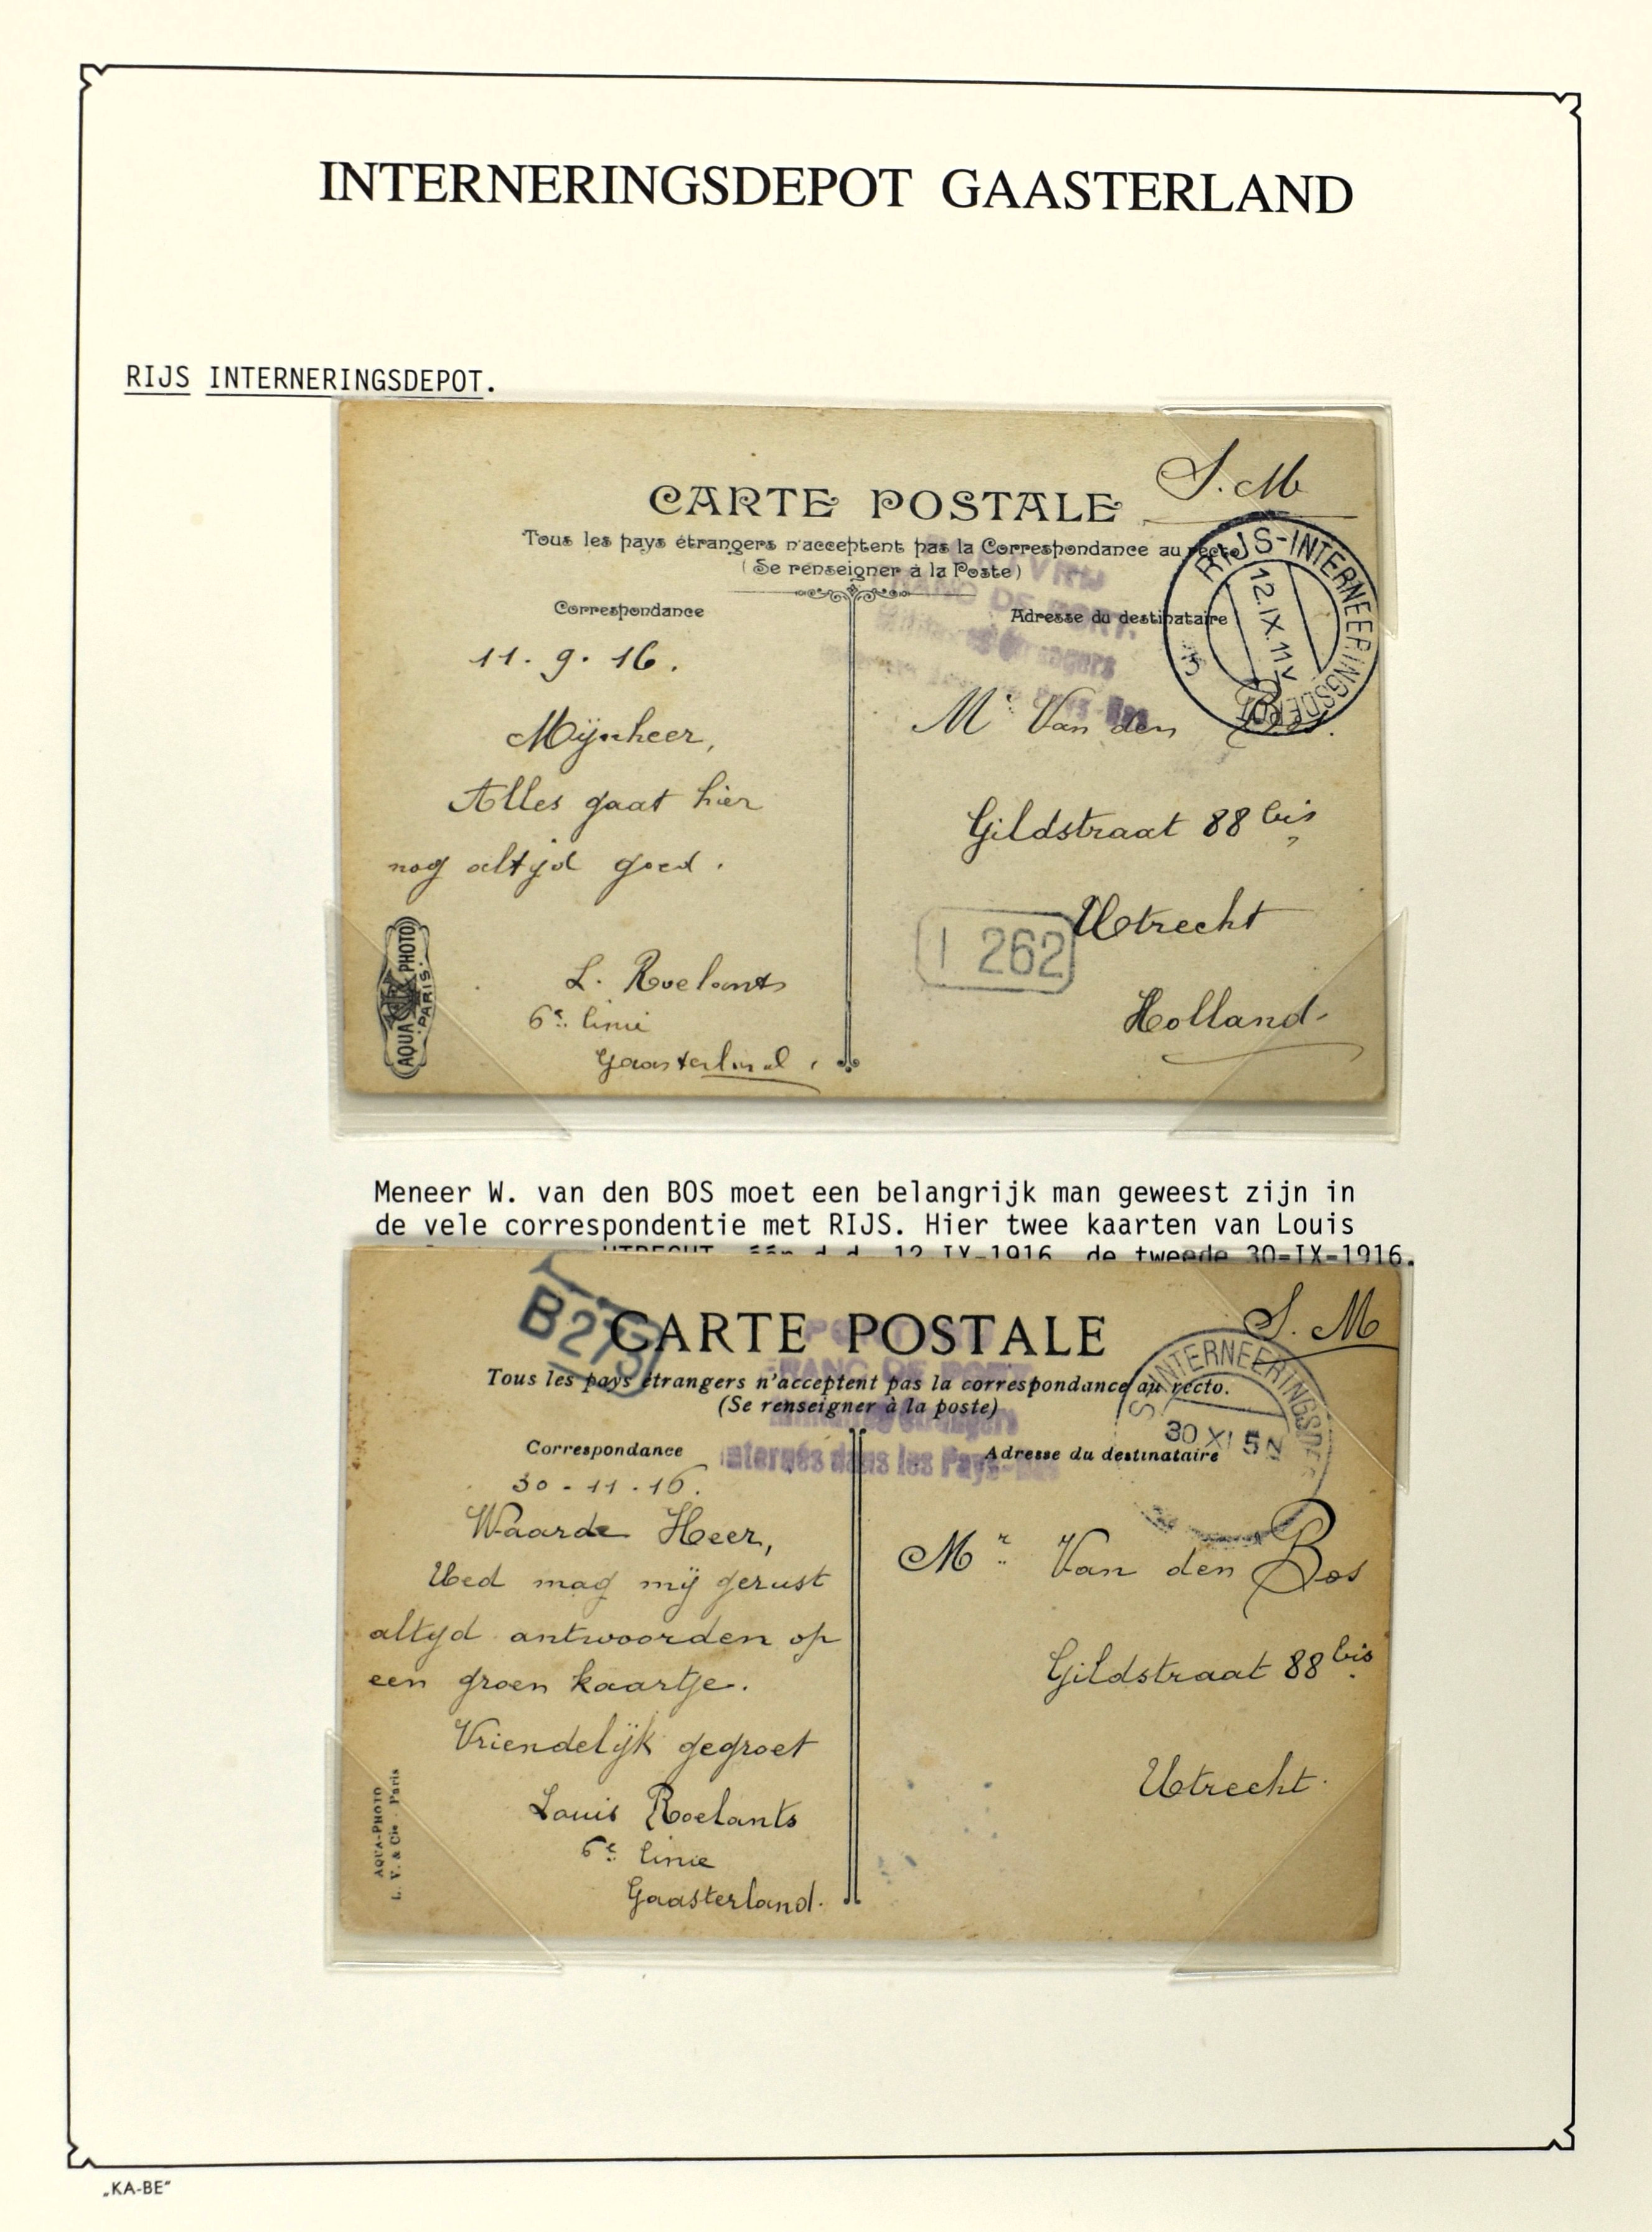 INTERNERINGSDEPOT GAASTERLAND
RIJS INTERNERINGSDEPOT.
S.M
CARTE POSTALE
Tous les pays étrangers n'acceptent pas la Correspondance au recto
(Se renseigner à la Poste)
Correspondance
Adresse du destinataire
RIJS-INTERNEERINGSDEPOT
12.IX.11V
11.9.16.
Mijnheer,
Alles gaat hier
nog altijd goed.
L. Roelants
6e linie
Gaasterland.
AQUA PHOTO
PARIS.
Mr Van den Bos.
Gildstraat 88 bis
I 262
Utrecht
Holland
Meneer W. van den BOS moet een belangrijk man geweest zijn in
de vele correspondentie met RIJS. Hier twee kaarten van Louis
UTRECHT, één d.d. 12-IX-1916, de tweede 30-IX-1916.
B273
S.M
CARTE POSTALE
Tous les pays étrangers n'acceptent pas la correspondance au recto.
(Se renseigner à la poste)
FRANC DE PORT
Internés dans les Pays-Bas
Correspondance
Adresse du destinataire
S-INTERNEERINGSDE
30 XI 5N
30-11-16.
Waarde Heer,
Ued mag mij gerust
altijd antwoorden op
een groen kaartje.
Vriendelijk gegroet
Louis Roelants
6e linie
Gaasterland.
AQUA-PHOTO
L. V. & Cie Paris
Mr Van den Bos
Gildstraat 88 bis
Utrecht.
„KA-BE"